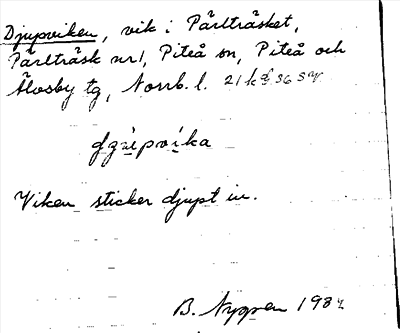 Djupviken, vik i Pärlträsket,
Pärlträsk nr 1, Piteå sn, Piteå och
Älvsby tg, Norrb. l. 21k
Viken sticker djupt in.
B. Nygren 198